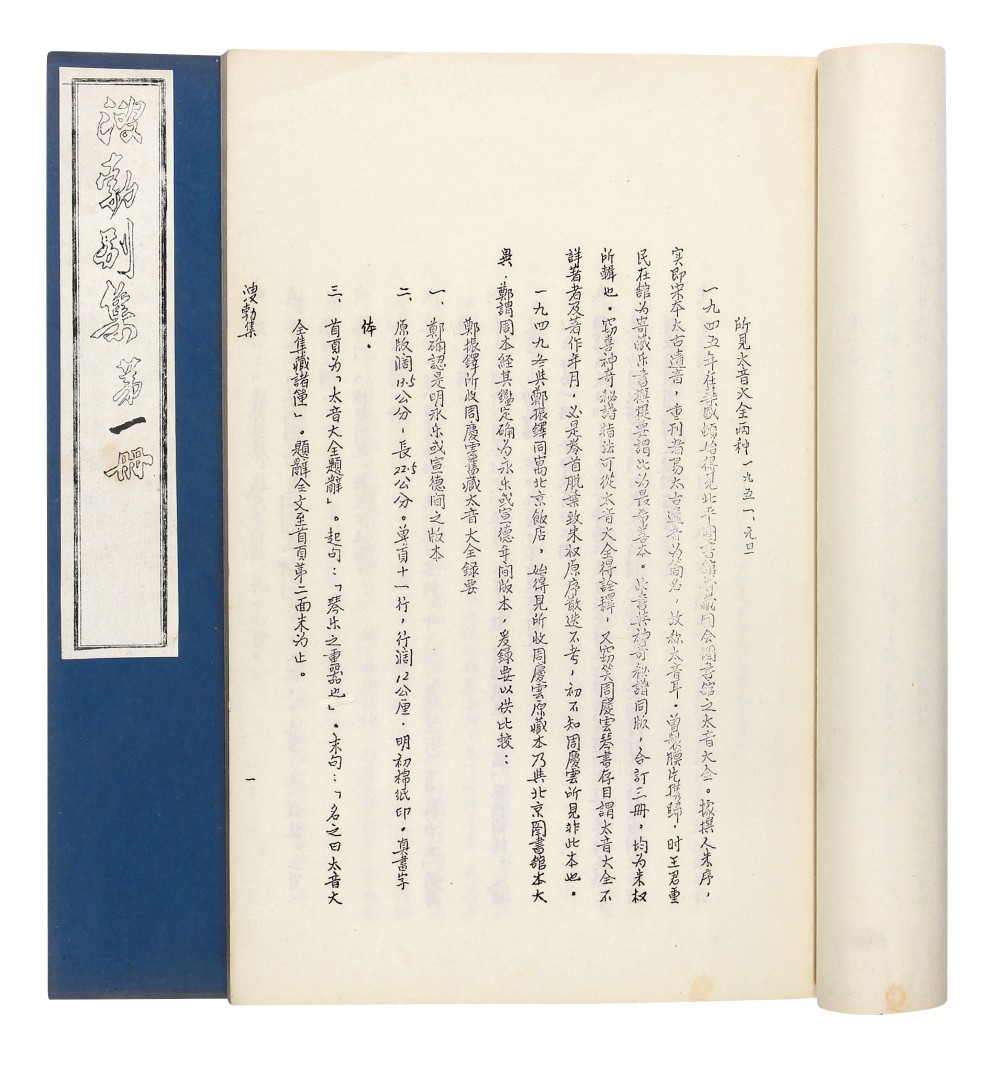 所見太音大全两种 一九五一、元旦
一九四五年在華盛頓始得見北平圖書館寄藏國会圖書舘之太音大全。據撰人朱序，
实即宋本太古遺音，重刊者易太古遺音为名，故称太音耳。曾製膠片携歸，时王君重
民在舘为寄藏乐書撰提要謂此为最希善本。此書與神奇秘譜同版，合訂三冊，均为朱权
所輯也。窃喜神奇秘譜指法可從太音大全得詮釋，又窃笑周慶雲琴書存目謂太音大全不
詳著者及著作年月，必是卷首脱葉致朱权原序散迭不考，初不知周慶雲所見非此本也。
一九四九冬與鄭振鐸同寓北京飯店，始得見所收周慶雲原藏本乃與北京圖書舘本大
異．鄭謂周本經其鑑定确为永乐或宣德年间版本，爰録要以供比較：
鄭振鐸所收周慶雲舊藏太音大全録要
一、鄭确認是明永乐或宣德间之版本
二、原版濶13.5公分，長22.5公分。单頁十一行，行濶12公厘．明初棉紙印。真書字
体。
三、首頁为「太音大全題辭」。起句：「琴乐之重器也」。末句：「名之曰太音大
全隻藏諸僮」。題辭全文至首頁第二面末为止。
溲勃集
一
溲勃别集第一冊